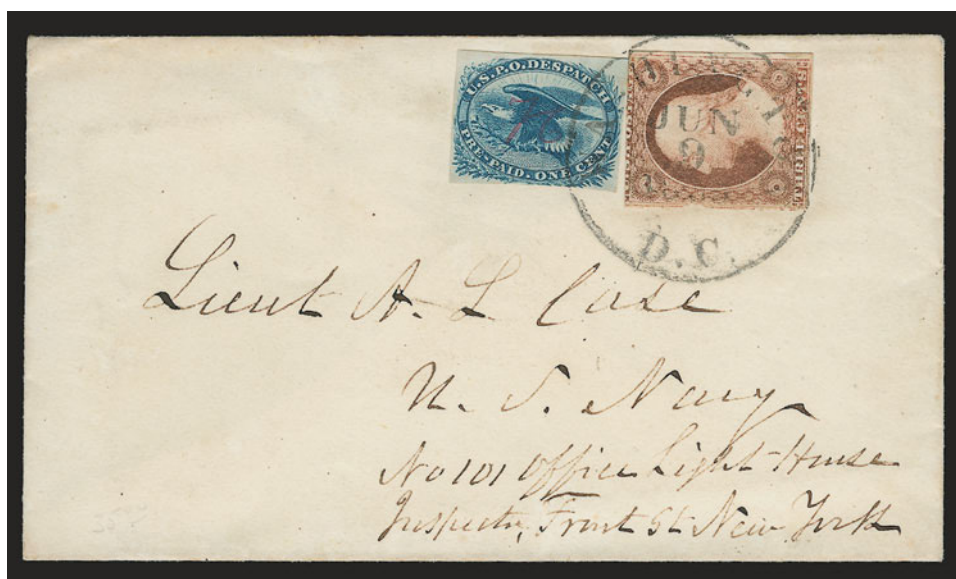 U.S.P.O. DESPATCH
PRE-PAID. ONE CENT.
JUN
9
D.C.
Lieut A. L Case
U. S. Navy
No 101 Office Light-House
Inspector, Front St New York